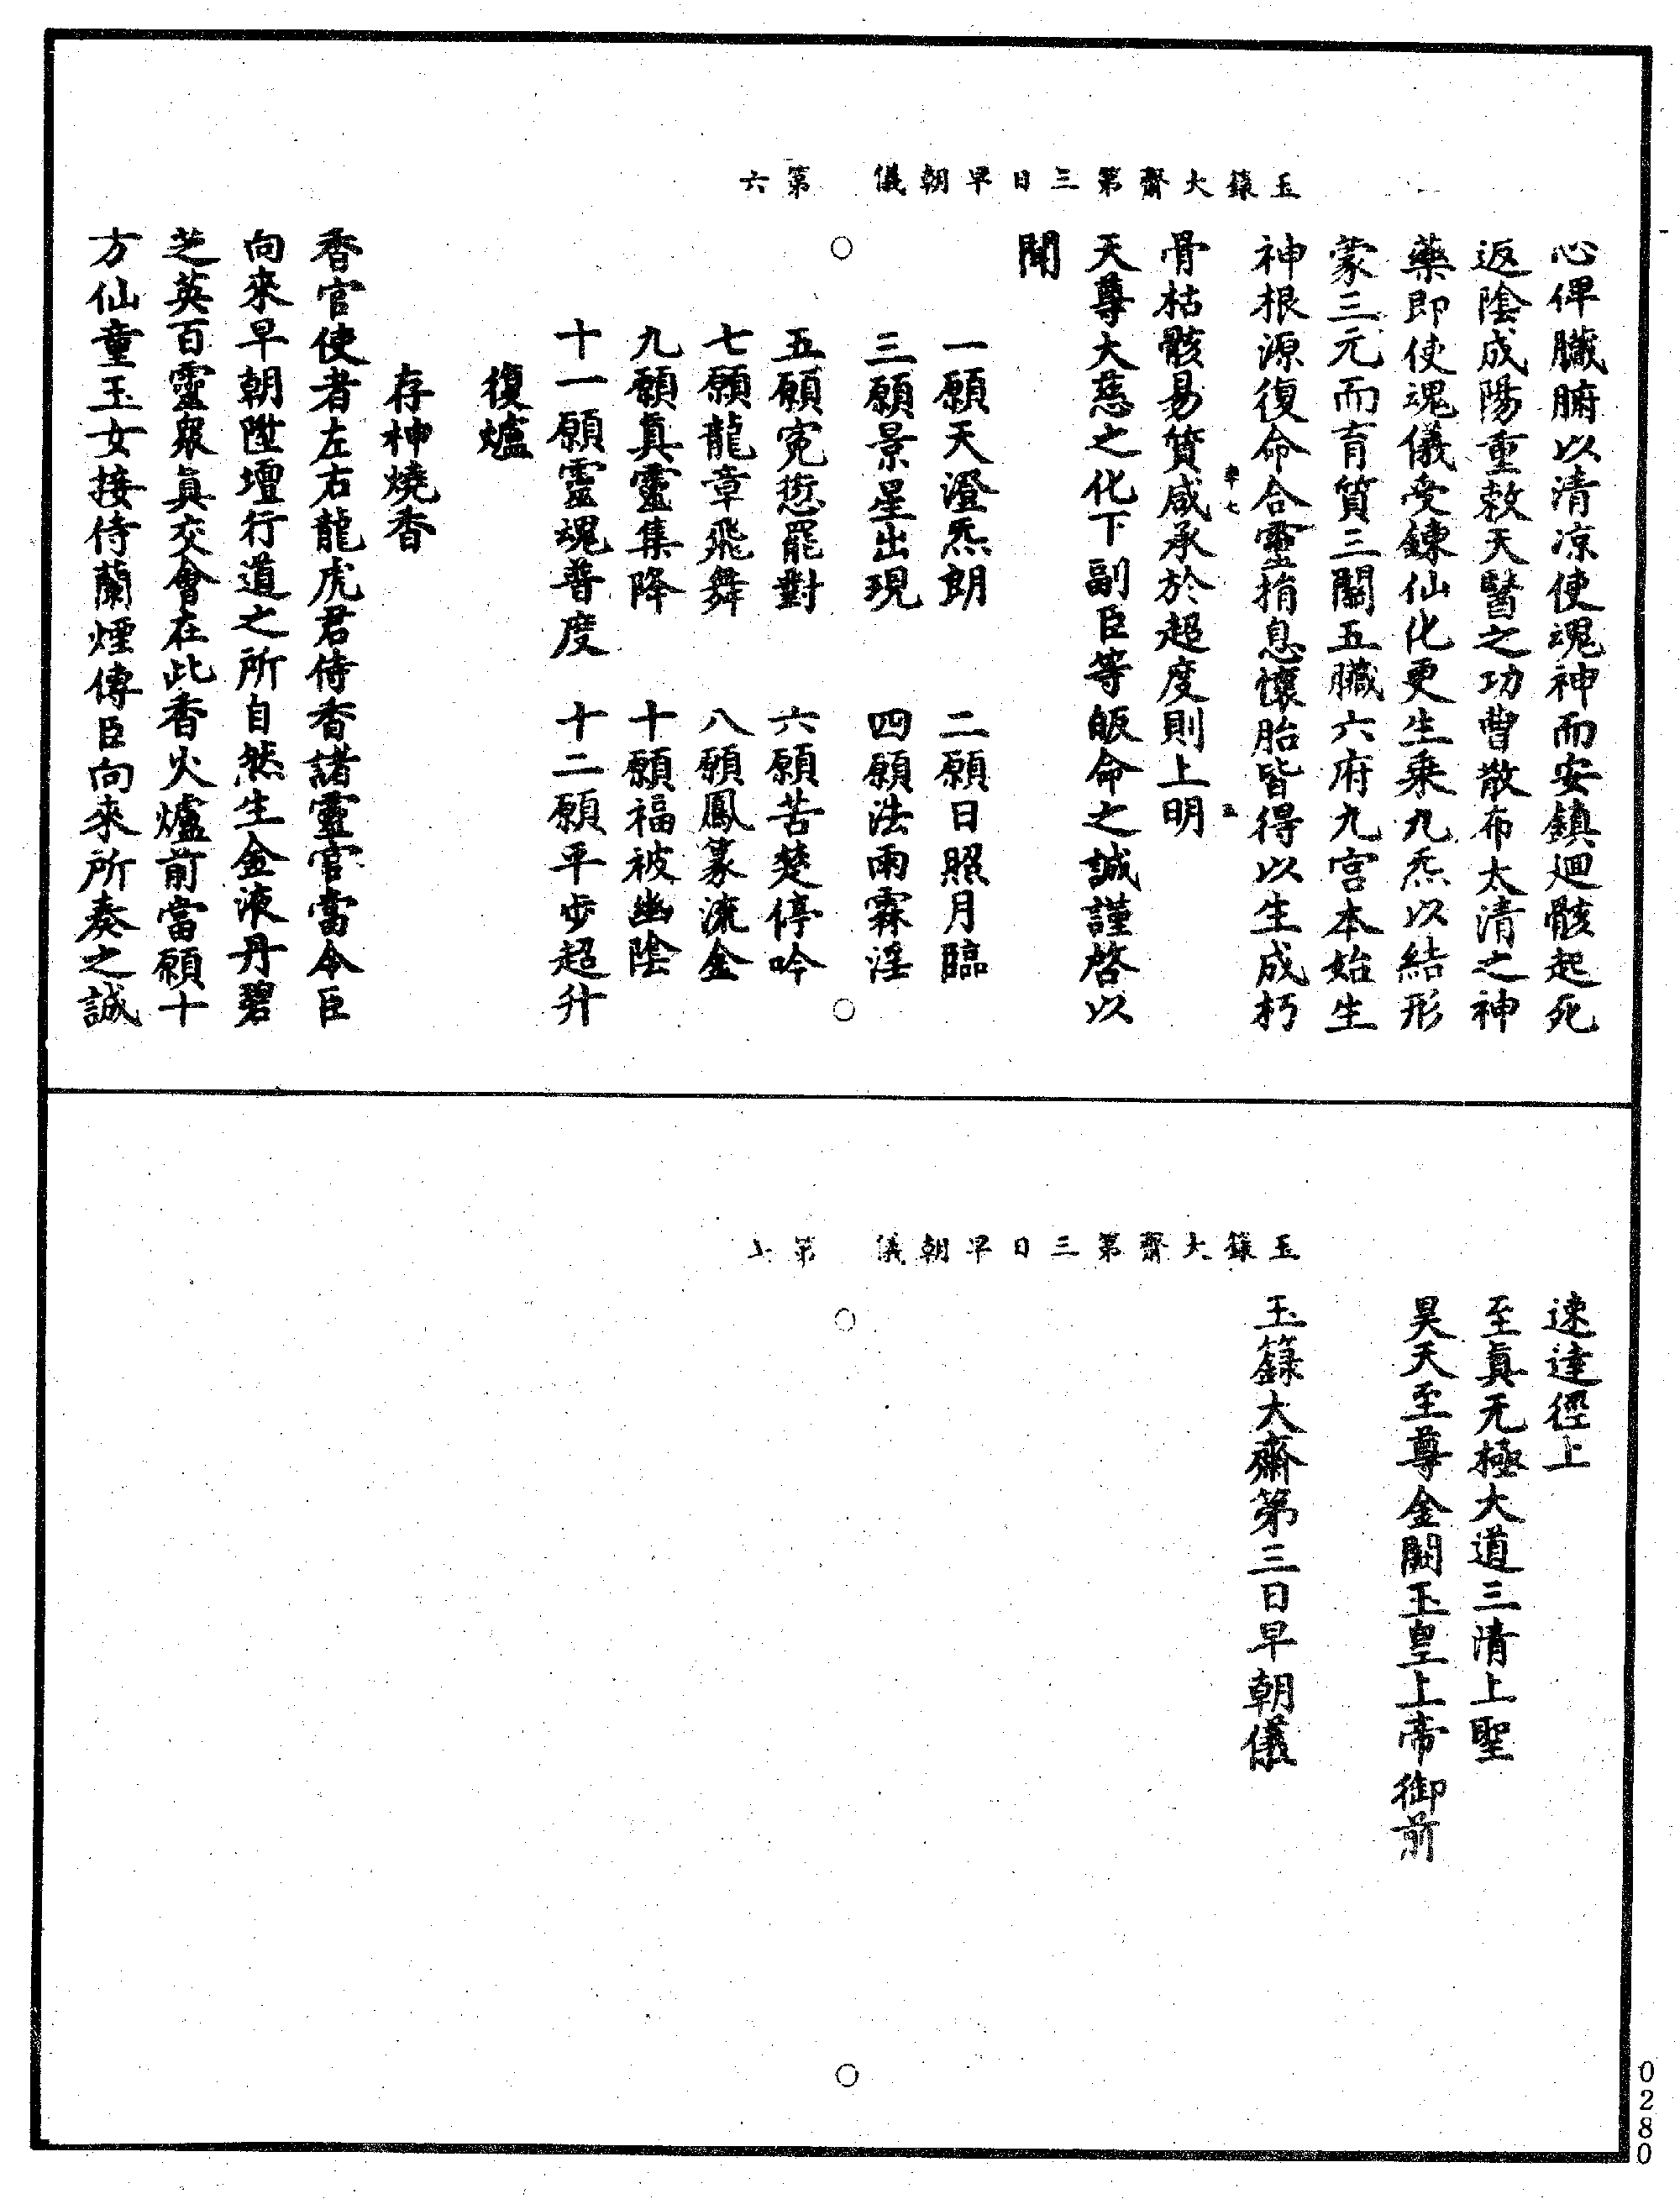 玉籙大齋第三日早朝儀　第六
心俾臟腑以清凉使魂神而安鎮廻骸起死
返陰成陽重敕天醫之功曹散布太清之神
藥即使魂儀受鍊仙化更生乘九炁以結形
蒙三元而育質三關五臟六府九宮本始生
神根源復命合靈捎息懷胎皆得以生成朽
骨枯骸易質咸承於超度則上明
天尊大慈之化下副臣等皈命之誠謹啓以
聞
一願天澄炁朗　二願日照月臨
三願景星出現　四願法雨霖淫
五願寃愆罷對　六願苦楚停吟
七願龍章飛舞　八願鳳篆流金
九願眞靈集降　十願福被幽陰
十一願靈魂普度　十二願平步超升
復爐
存神燒香
香官使者左右龍虎君侍香諸靈官當令臣
向來早朝陞壇行道之所自然生金液丹碧
芝英百靈衆眞交會在此香火爐前當願十
方仙童玉女接侍蘭煙傳臣向來所奏之誠
玉籙大齋第三日早朝儀　第
速達徑上
至眞无極大道三清上聖
昊天至尊金闕玉皇上帝御前
玉籙大齋第三日早朝儀
0280